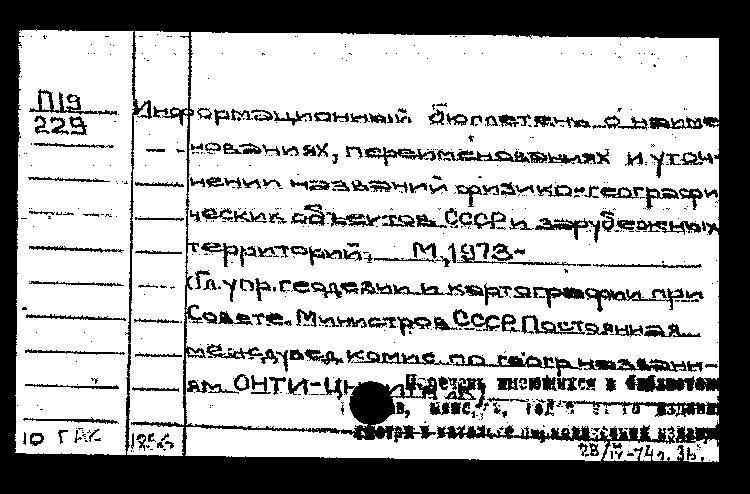 П19
229
Информационный бюллетень о наиме
нованиях, переименованиях и уточ-
нении названий физико-географи
ческих объектов СССР и зарубежных
территорий. М, 1973-
(Гл. упр. геодезии и картографии при
Совете Министров СССР. Постоянная
междувед. комис. по геогр. названи-
ям ОНТИ-ЦН
Перечень имеющихся в библиотеке
издания
смотри в каталоге периодических изданий
10 ГАК 1356
28/IV-74г. Зв.